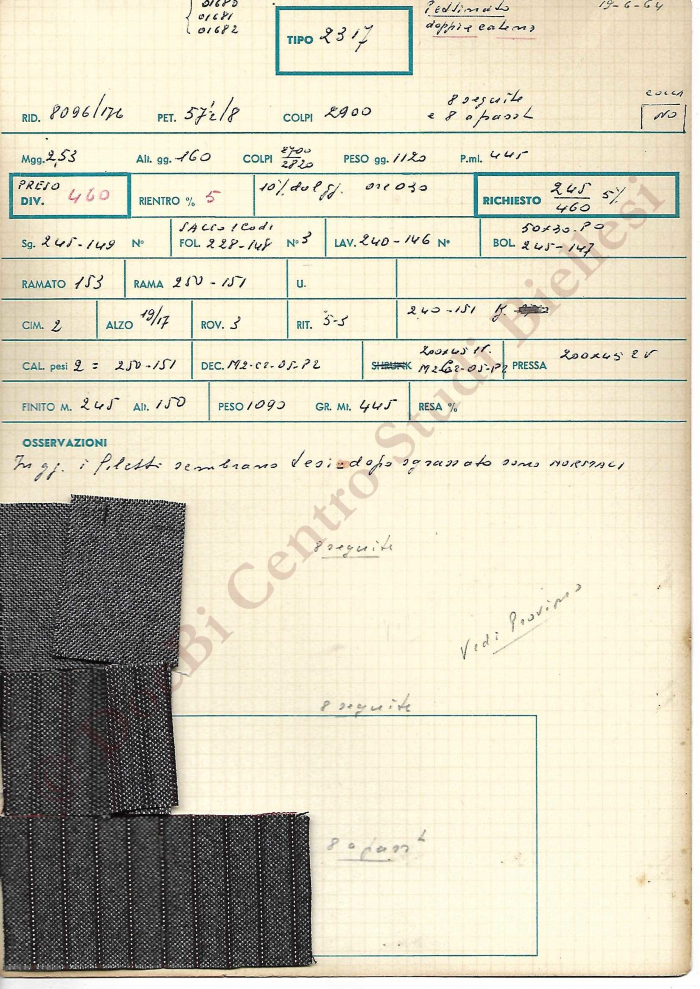 01680
01681
01682
Pettinato
doppia catena
19-6-64
TIPO 2317
RID. 8096/176 PET. 57½/8 COLPI 2900 8 seguite e 8 a passt COLLA NO
Mgg. 2,53 Alt. gg. 160 COLPI 2700/2820 PESO gg. 1120 P.ml. 445
PRESO DIV. 460 RIENTRO % 5 10% dal gg. RICHIESTO 245/460 5%
Sg. 245-149 N° SACCO FOL. 228-148 N° 3 LAV. 240-146 N° 50x30 PO BOL. 245-147
RAMATO 153 RAMA 250-151 U.
CIM. 2 ALZO 19/17 ROV. 3 RIT. 5-5 240-151
CAL. pesi 2 = 250-151 DEC. M2-C2-05-P2 SHRUNK 200x45 M2C2-05-P2 PRESSA 200x45 2V
FINITO M. 245 Alt. 150 PESO 1090 GR. Mt. 445 RESA %
OSSERVAZIONI
In gg. i filetti sembrano tesi = dopo sgrassato sono NORMALI
8 seguite
Vedi Provino
8 seguite
8 a passt
DocBi Centro Studi Biellesi